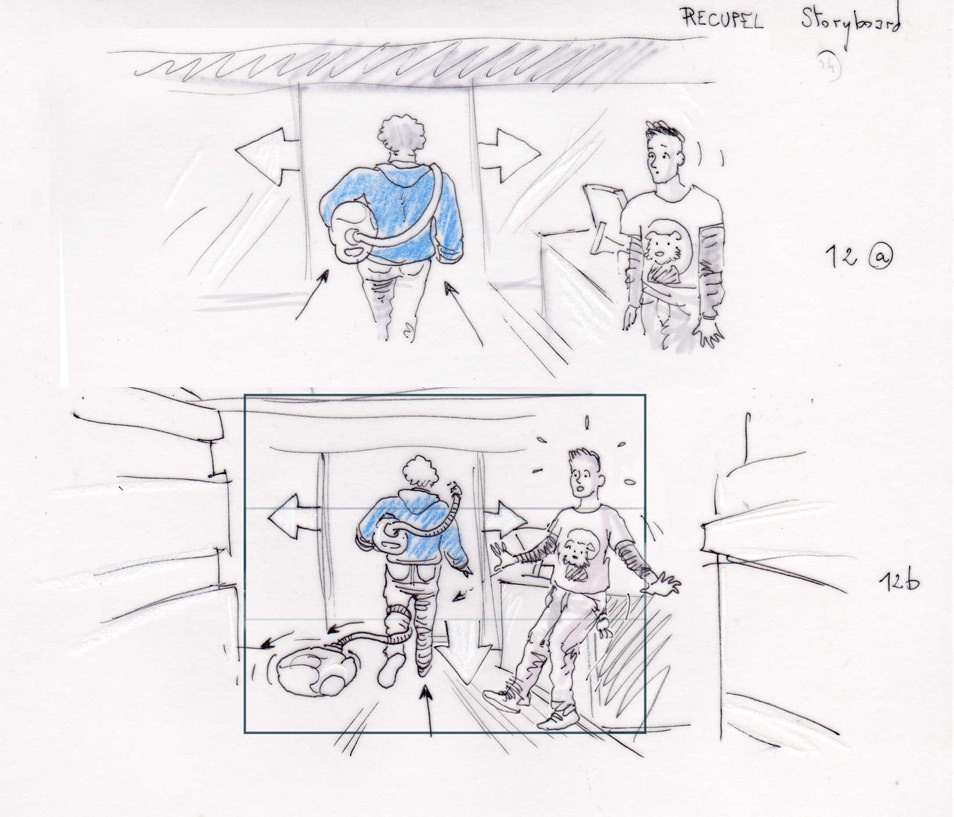 RECUPEL Storyboard
12 a
12b